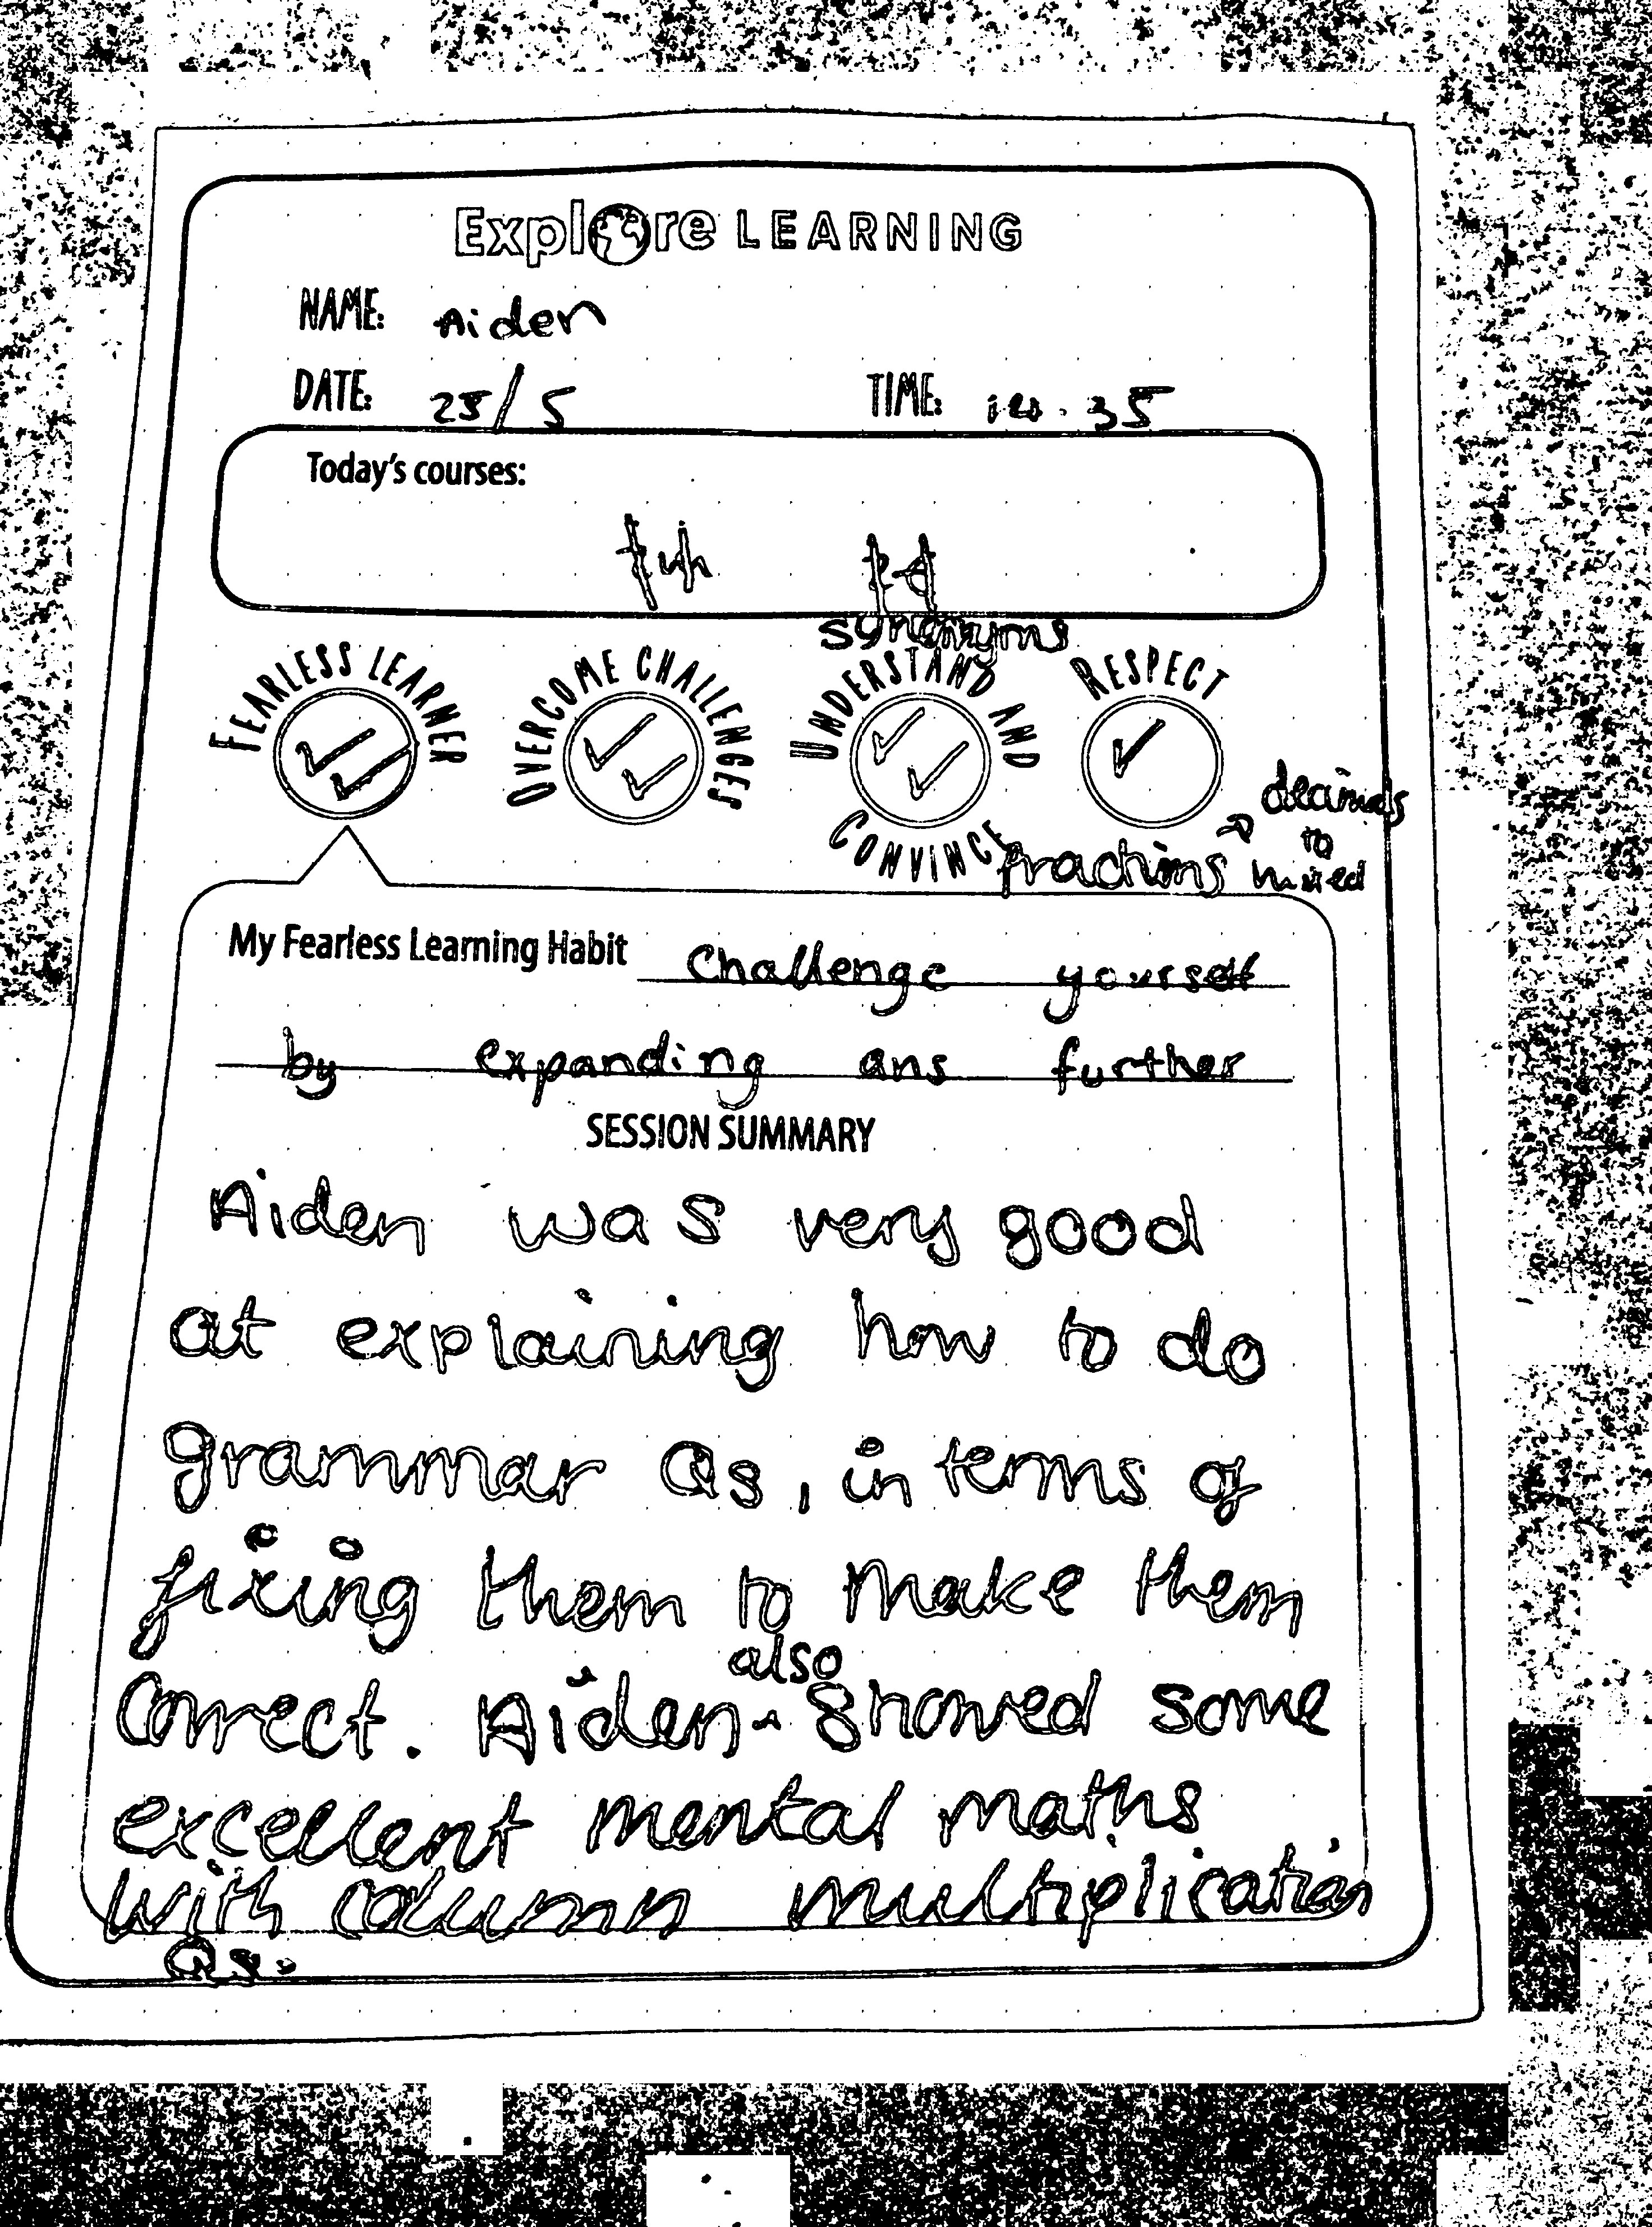 Explore LEARNING
NAME: Aiden
DATE: 25/5
TIME: 35
Today's courses:
synonyms
FEARLESS LEARNER
OVERCOME CHALLENGES
UNDERSTAND AND CONVINCE
RESPECT
fractions → decimals
to
mixed
My Fearless Learning Habit Challenge yourself
by expanding ans further
SESSION SUMMARY
Aiden was very good
at explaining how to do
grammar Qs, in terms of
fixing them to make them
correct. Aiden also showed some
excellent mental maths
with column multiplication
Qs.